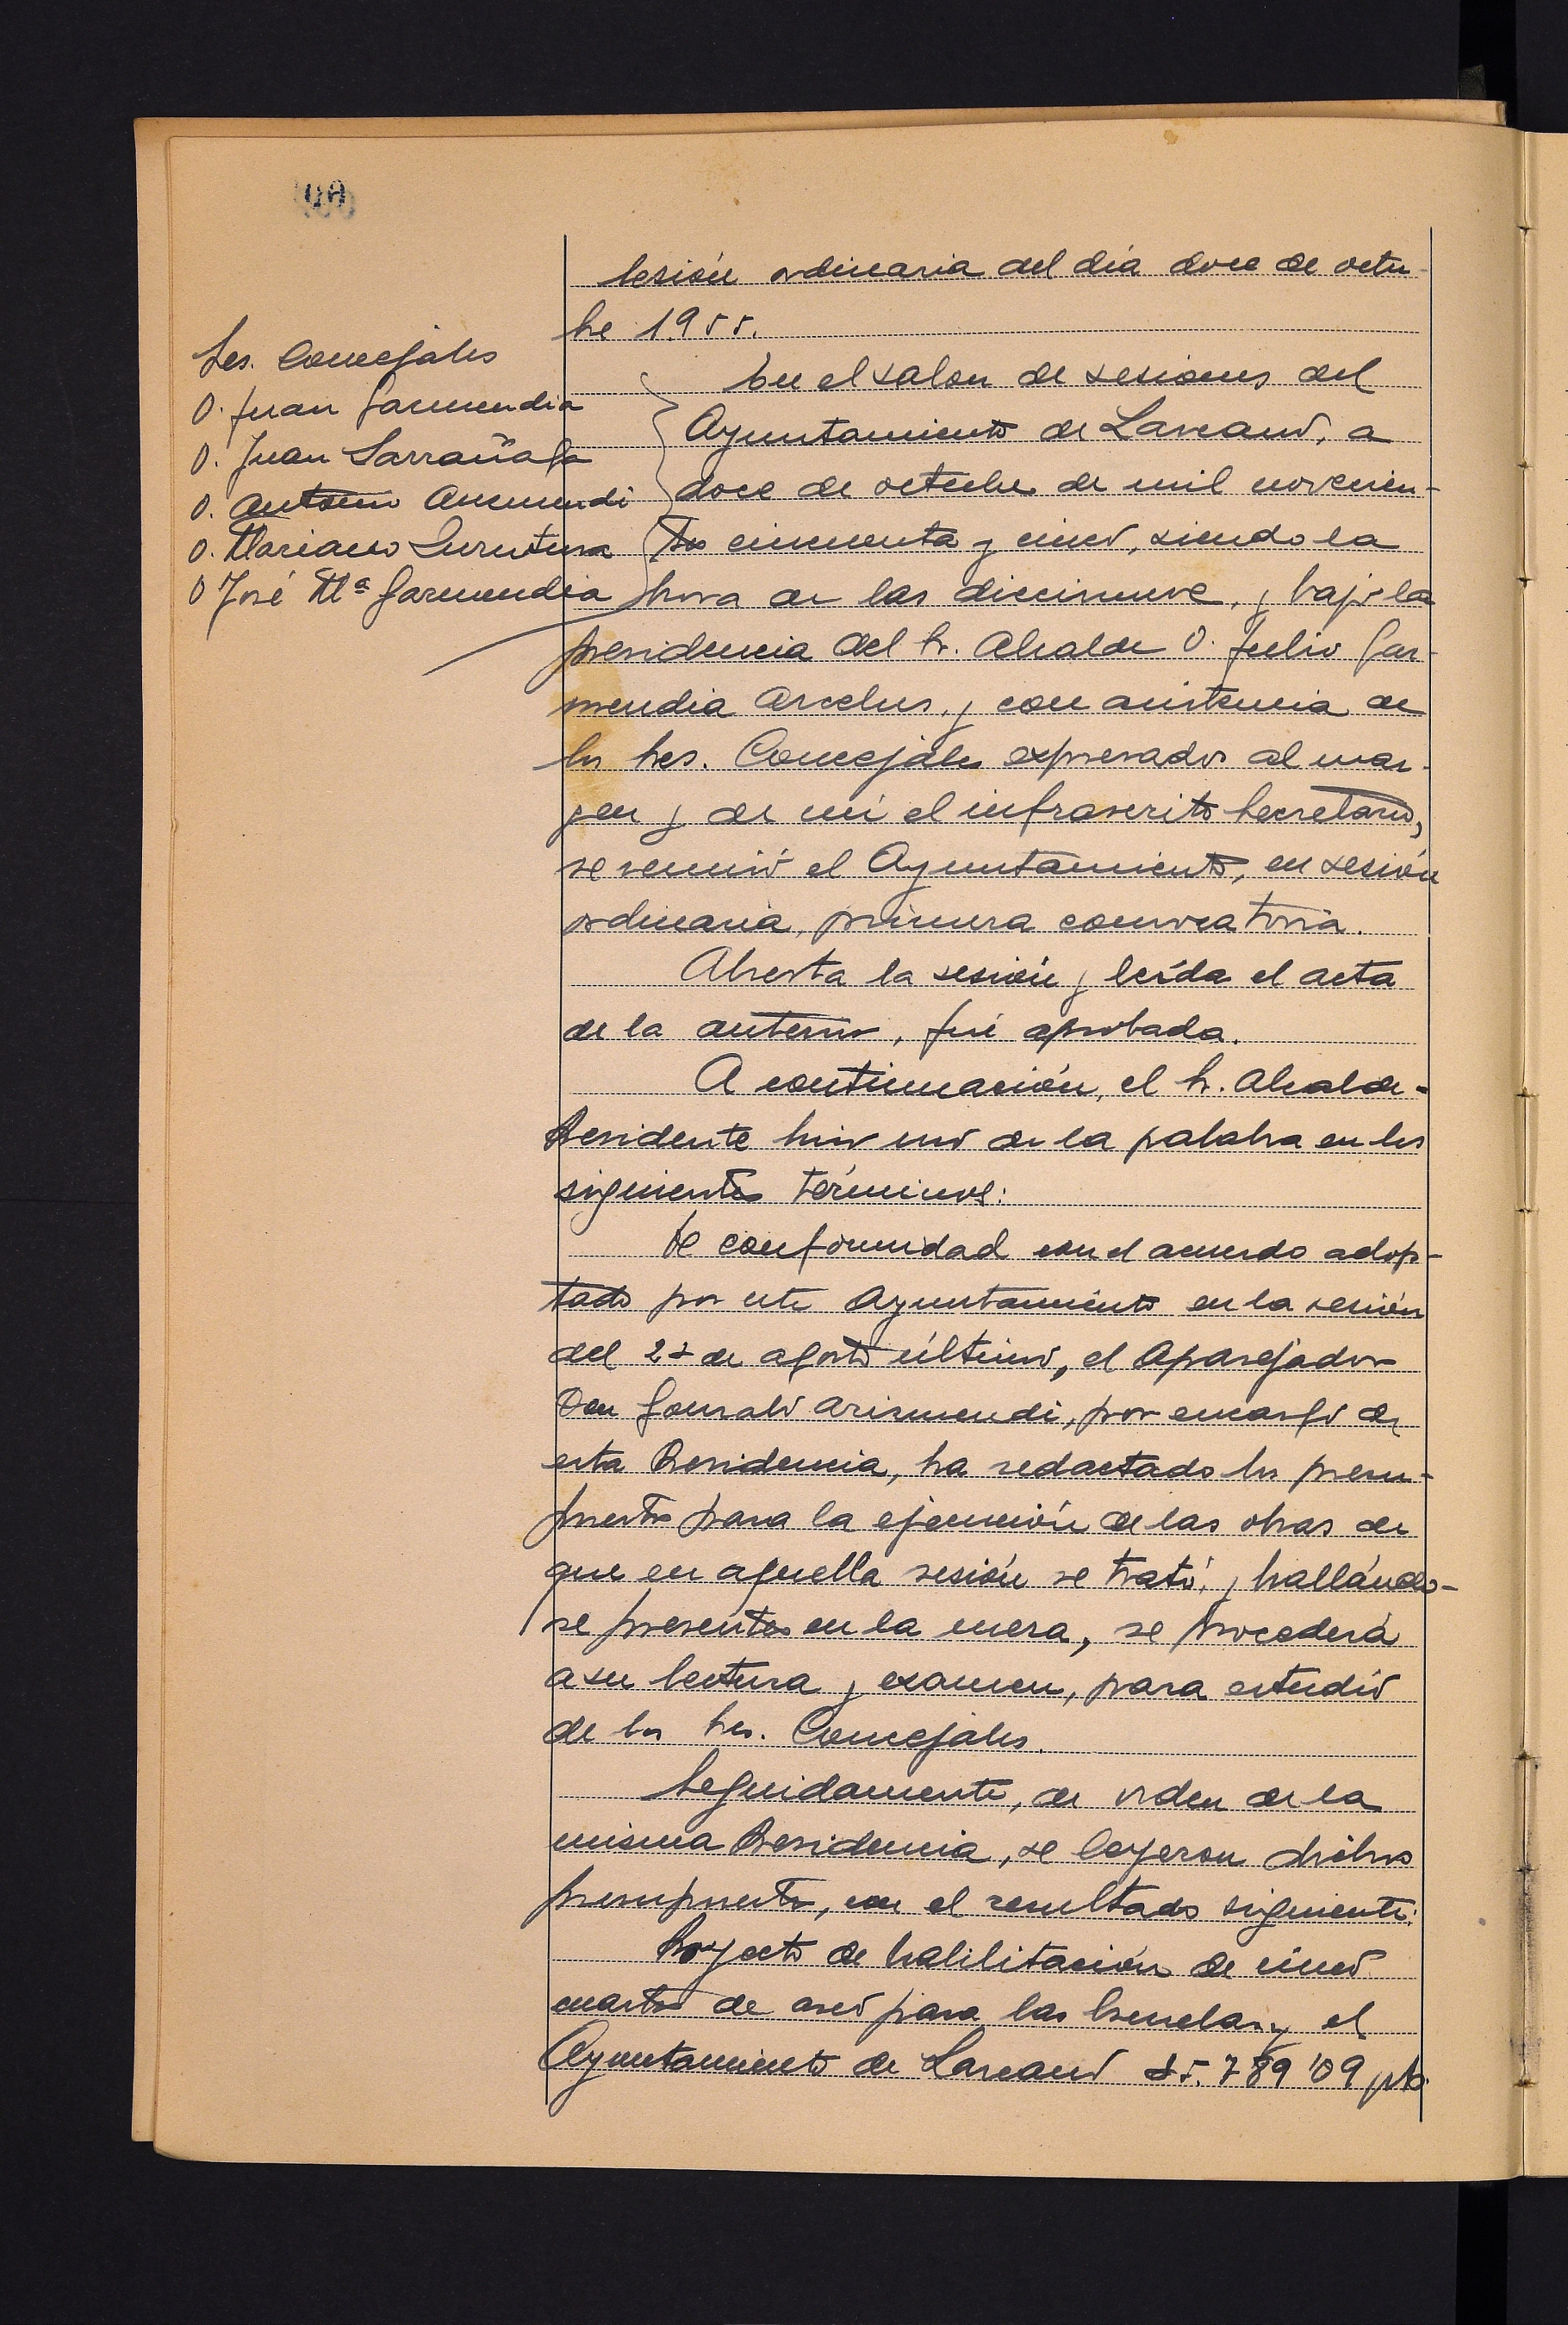 Sesión ordinaria del día doce de octu-
bre 1955.
Sres. Concejales
D. Juan Garmendia
D. Juan Larrañaga
D. Antonio
D. Mariano
D José Mª Garmendia
En el salon de sesiones del
Ayuntamiento de Lazcano, a
doce de octubre de mil novecien-
tos cincuenta y cinco, siendo la
hora de las diecinueve, y bajo la
presidencia del Sr. Alcalde D. Julio Gar-
mendia Arcelus, y con asistencia de
los Sres. Concejales expresados al mar-
gen y de mi el infrascrito Secretario,
se reunió el Ayuntamiento, en sesión
ordinaria, primera convocatoria.
Abierta la sesión y leída el acta
de la anterior, fué aprobada.
A continuación, el Sr. Alcalde-
Presidente hizo uso de la palabra en los
siguientes términos:
De conformidad con el acuerdo adop-
tado por este Ayuntamiento en la sesión
del de agosto último, el Aparejador
Don Gonzalo Arizmendi, por encargo de
esta Presidencia, ha redactado los presu-
puestos para la ejecución de las obras de
que en aquella sesión se trató, y hallándo-
se presentes en la mesa, se procederá
a su lectura y examen, para estudio
de los Sres. Concejales.
Seguidamente, de orden de la
misma Presidencia, se leyeron dichos
presupuestos, con el resultado siguiente:
Proyecto de habilitación de cinco
cuartos de aseo para las Escuelas y el
Ayuntamiento de Lazcano 85.789'09 pts.